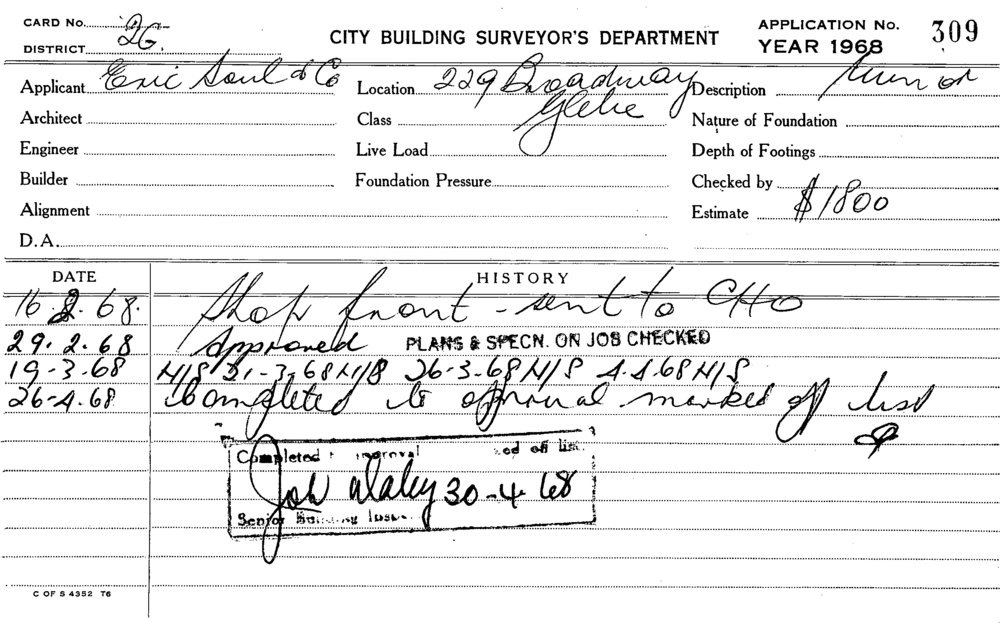 CARD No. 2G. CITY BUILDING SURVEYOR'S DEPARTMENT APPLICATION No. 309
DISTRICT YEAR 1968
Applicant Eric Soul & Co Location 229 Broadway Description
Architect Class Glebe Nature of Foundation
Engineer Live Load Depth of Footings
Builder Foundation Pressure Checked by
Alignment Estimate $1800
D.A.
DATE HISTORY
16.2.68. Shop front - sent to CHO
29.2.68 Approved PLANS & SPECN. ON JOB CHECKED
19-3.68 N/S 21-3-68 N/S 26-3-68 N/S 4.4.68 N/S
26-4.68 Completed to approval marked off list
Completed approval ked off list
30-4-68
Senior Building Inspe
C OF S 4352 T6